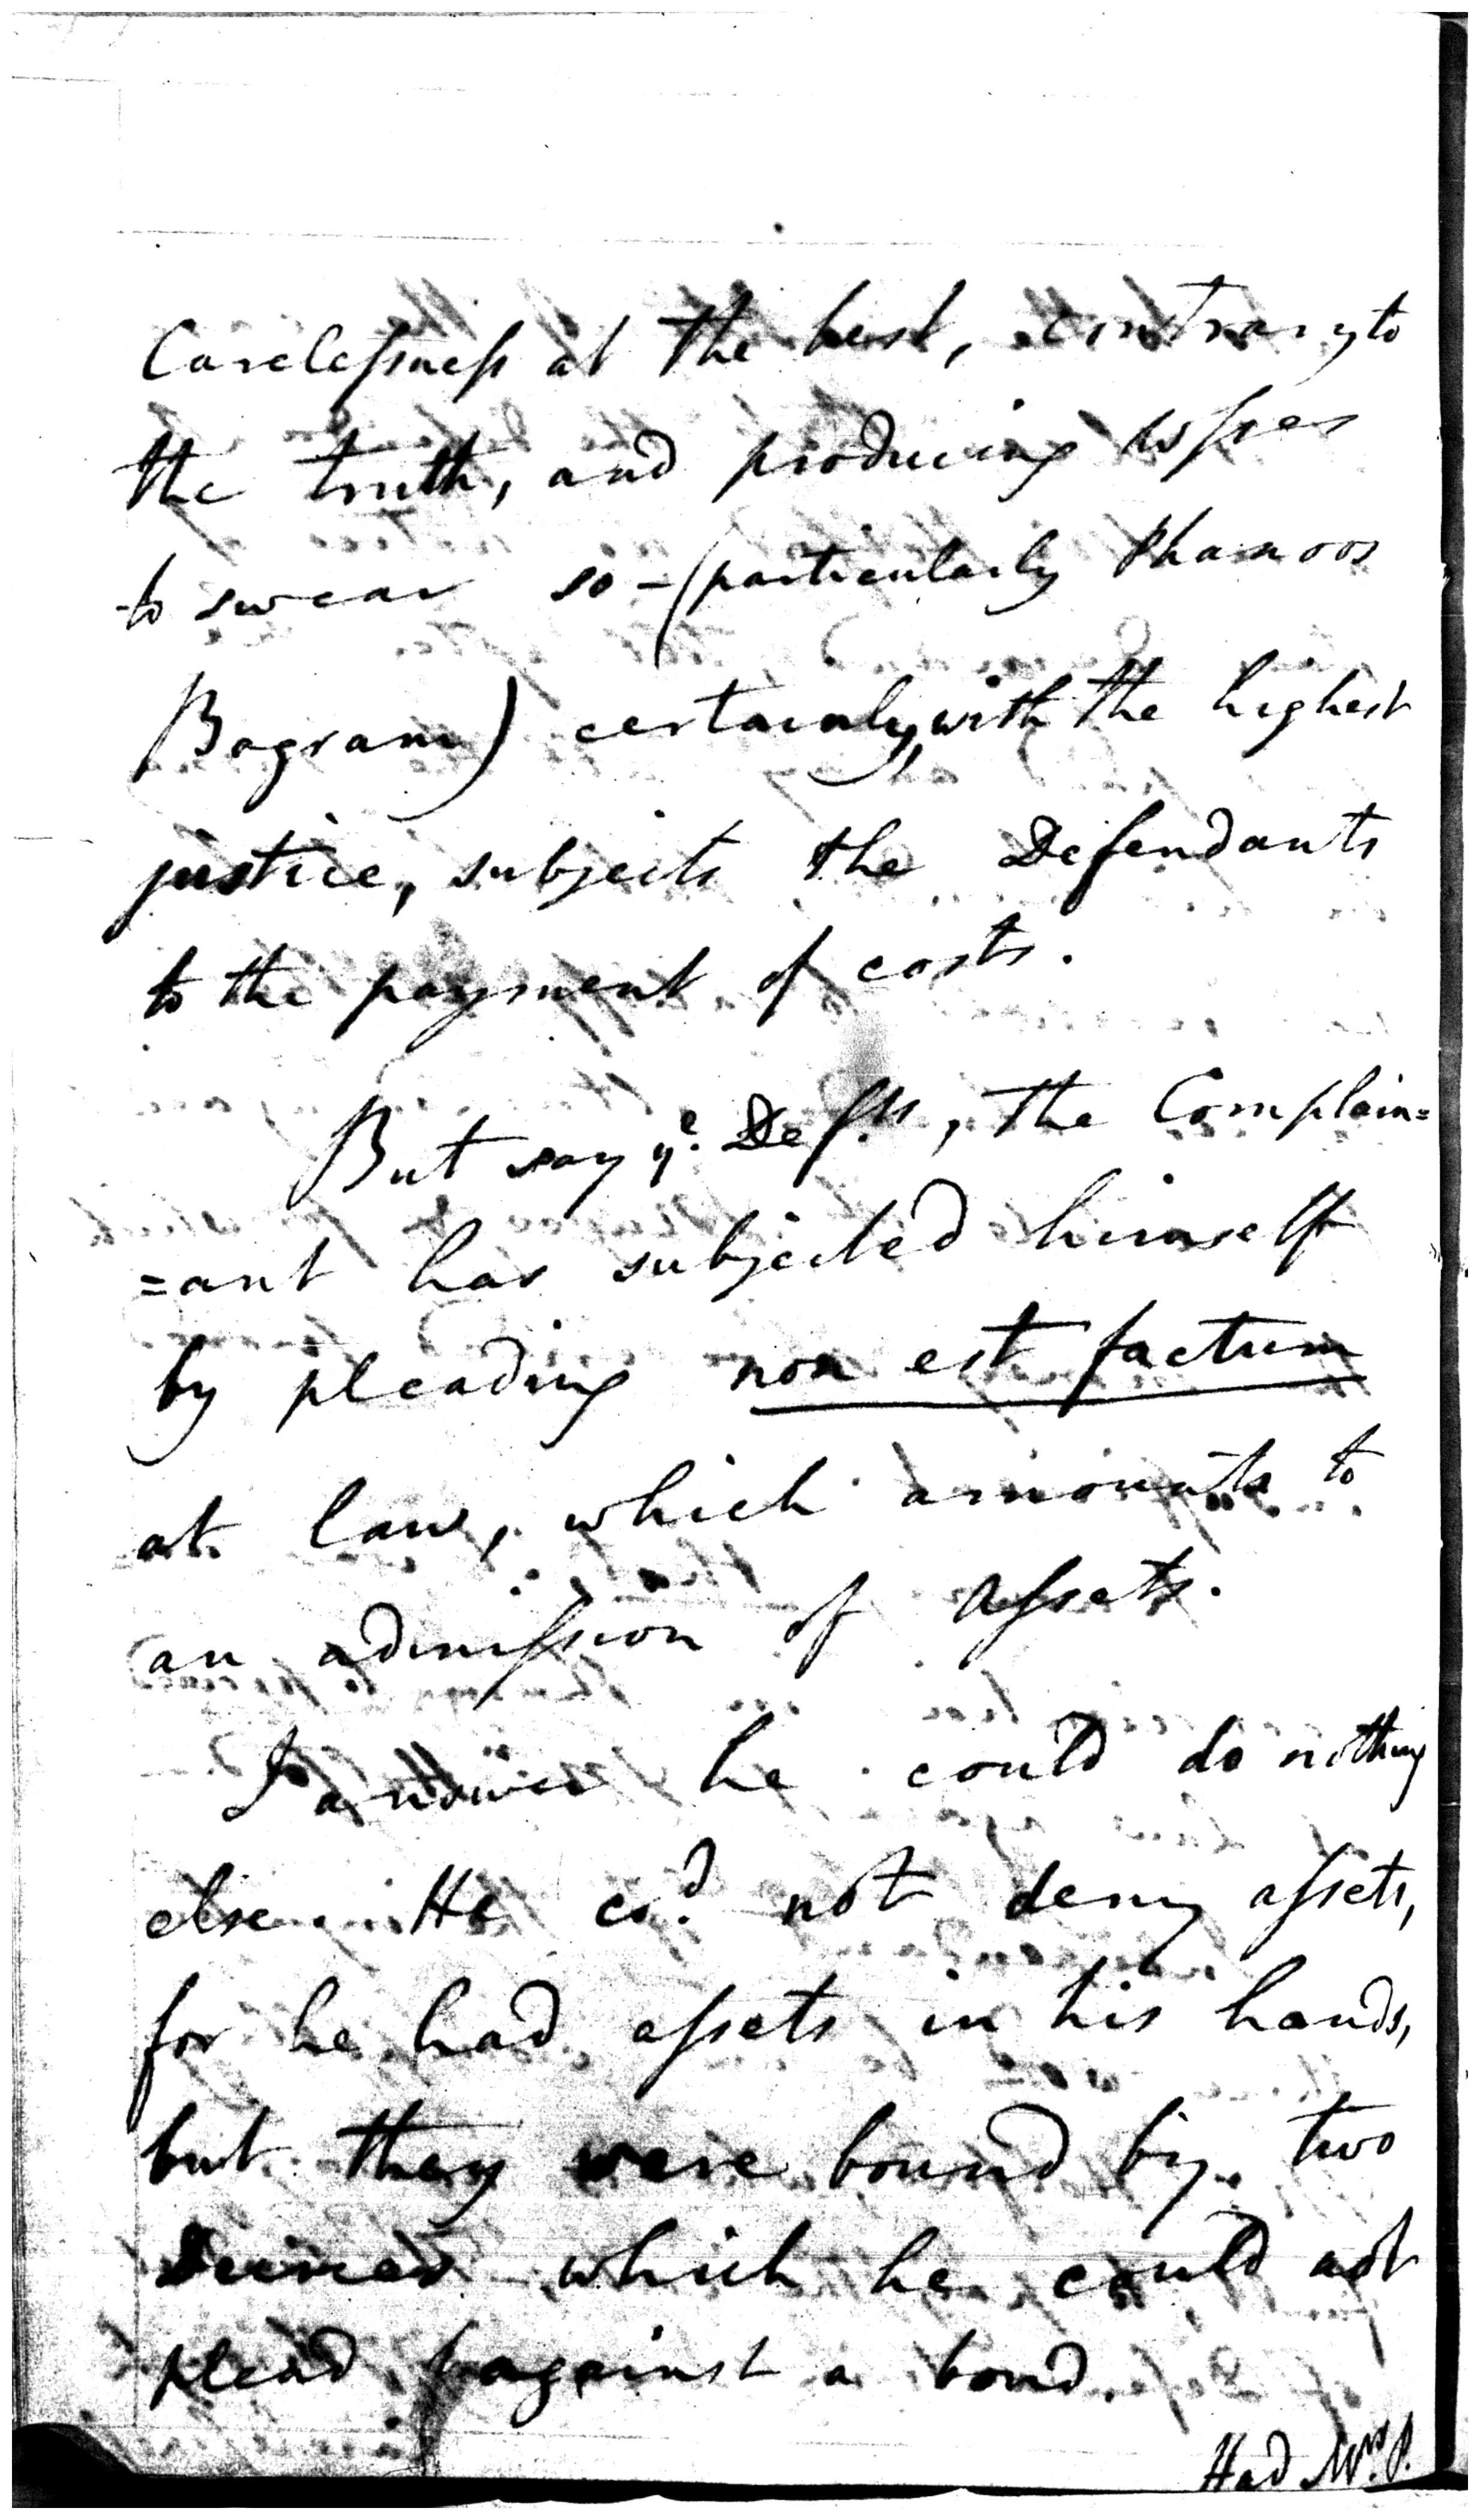 Carelessness at the best, contrary to
the truth, and producing
to swear so - (particularly
Bagram) certainly, with the highest
justice, subjects the Defendants
to the payment of costs.
But say yͤ. Defᵗˢ, the Complain=
=ant has subjected himself
by pleading non est factum
at law, which amounts to
an admission of assets.
I answer he could do nothing
else. He coᵈ. not deny assets,
for he had assets in his hands,
but they were bound by two
Decrees which he could not
plead against a bond.
Had Mʳˢ. P.